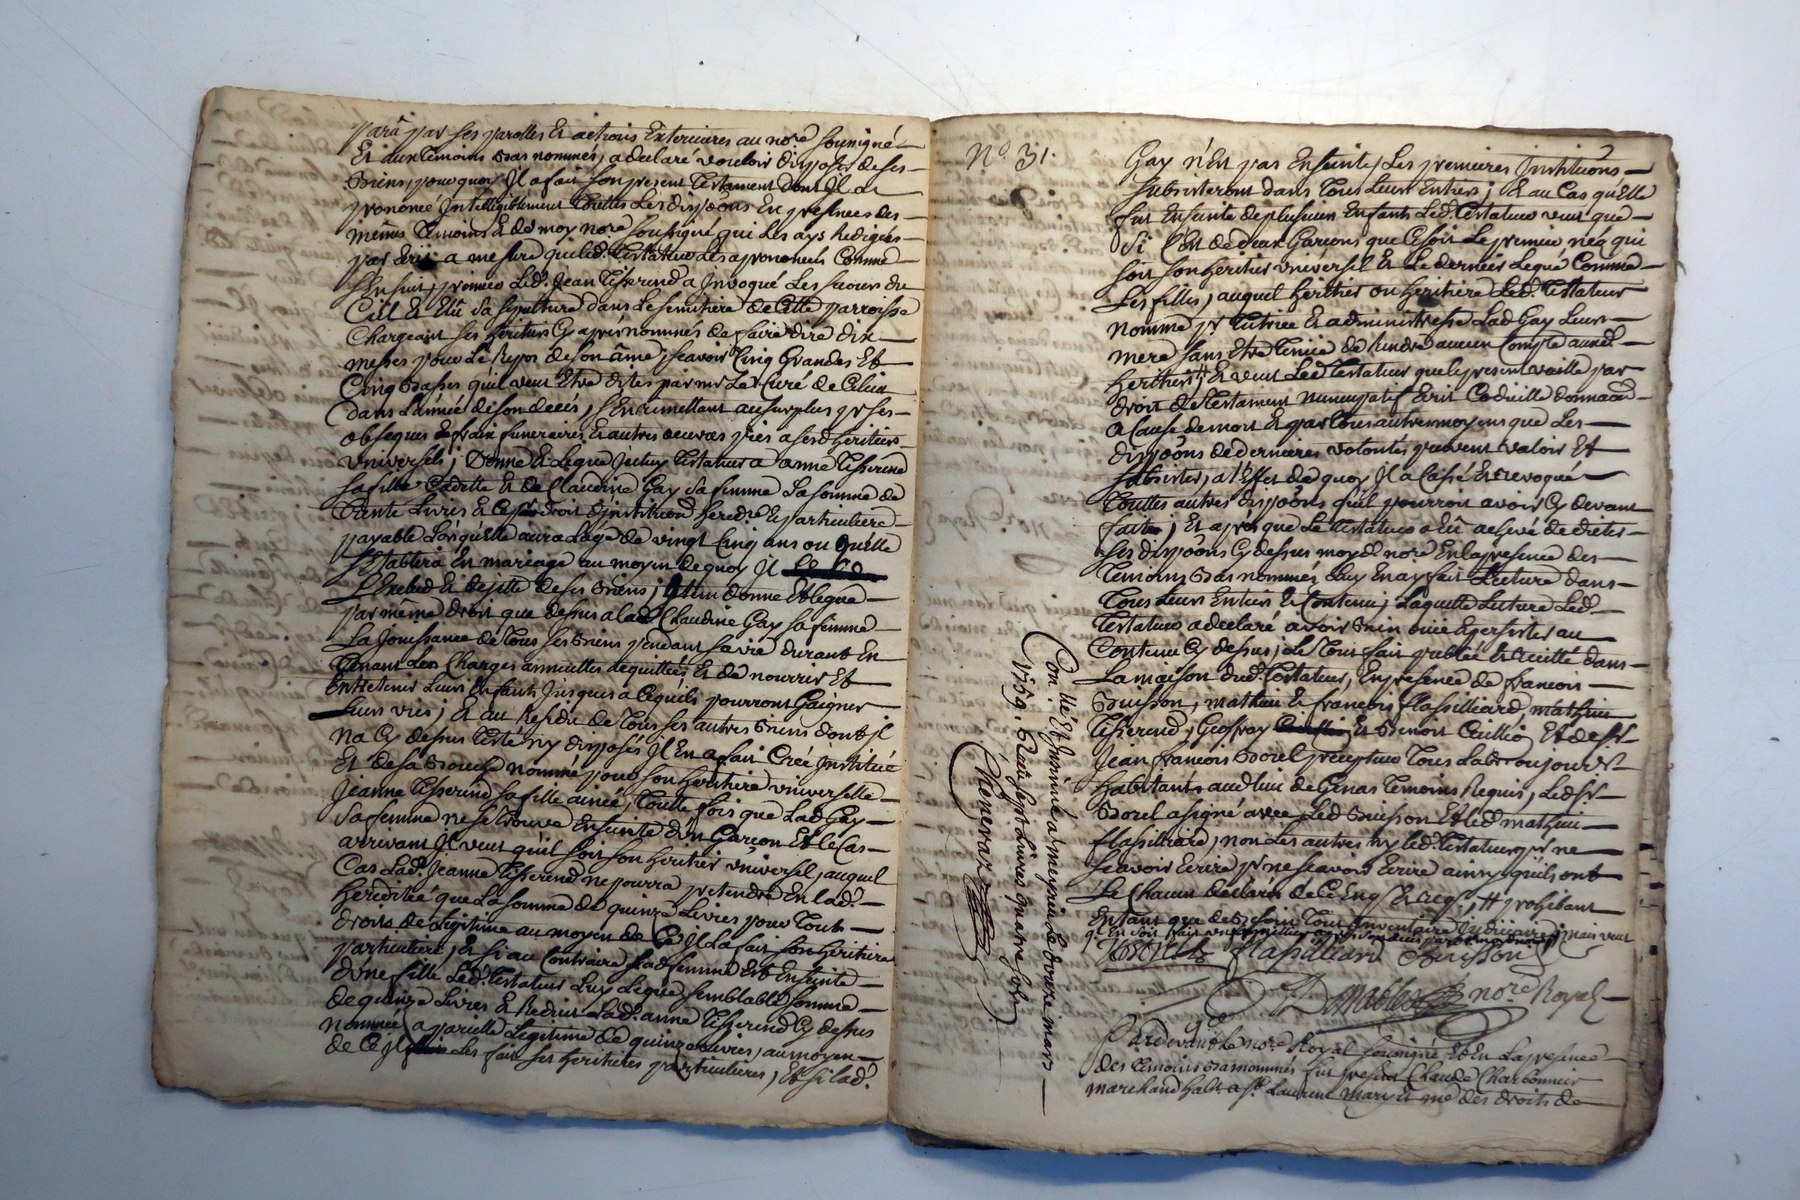 par ses parolles Et actions Exterieures au no.re soussigné
Et aux temoins bas nommés, a declaré vouloir disposer de ses
Biens, pourquoy Il a fait son present testament dont Il a
prononcé Intelligiblement touttes Les dispoons En presence des
mêmes temoins & de moy no.re soussigné qui Les ays Redigées
par Ecrit a mesure que led. testateur Les a prononcés Comme
s'En suit, premier Led. Jean tisserand a Invoqué Les secours du
Ciel & Elu sa sepulture dans Le semitiere de Cette parroisse
Chargeant ses heritiers Cy aprés nommés de faire dire dix
messes pour Le Repos de son âme, scavoir Cinq Grandes Et
Cinq Basses qu'il veut Etre dites par mr Le Curé de
dans L'année de son decés, s'En remettant au surplus pr ses
obseques & frais funeraires, Et autres oeuvres pies a sesd heritiers
vniversels, Donne & Legue Jceluy testateur a anne tisserand
sa fille Cadette Et de Claudine Gay sa femme La somme de
trente Livres & Ce par droit d'institution heredre Et particuliere
payable Lorsquelle aura L'age de vingt Cinq ans ou qu'elle
s'Etablira En mariage au moyen de quoy Jl
L'Exclud Et dejette de ses Biens; Jtem donne Et legue
par meme droit que dessus a lad Claudine Gay sa femme
La Jouissance de tous ses Biens pendant sa vie durant En
tenant Les Charges annuelles acquittées Et de nourrir Et
Entretenir Leurs Enfants Jusques a Cequils pourront Gaigner
Leurs vies; Et au Residu de tous ses autres Biens dont Jl
na Cy dessus testé ny disposés Jl En a fait Créé Jnstitué
Et de sa Bouche nommé pour son heritiere vniverselle
Jeanne tisserand sa fille ainée, toutte fois que Lad Gay
sa femme ne se trouve Enseinte d'un Garcon Et le Cas
arrivant Jl veut qu'il soit son heritier vniversel, auquel
Cas Lad. Jeanne tisserand ne pourra pretendre En lad.
heredité que La somme de quinze Livres pour tout
droits de Legitime au moyen de Ce Jl La fait son heritiere
particuliere, Et si au Contraire sad femme Est Enseinte
d'une fille Led. testateur Luy Legue semblable somme
de quinze Livres Et Reduit Lad. anne tisserand Cy dessus
nommée a pareille Legitime de quinze Livres, au moyen
de Ce Jl Les fait ses heritieres particulieres, Et si lad.
No. 31.
Gay n'Est pas Enseinte, Les premieres Jnstitutions
subsisteront dans tous Leurs Entiers; & au Cas qu'Elle
fut Enseinte de plusieurs Enfants Led. testateur veut que
si C'Est de deux Garcons que Ce soit Le premier néa qui
soit son heritier vniversel Et Le dernier Legué Comme
Les filles, auquel heritier ou heritiere Led. testateur
nomme pr tutrice Et administresse Lad Gay Leur
mere sans Etre tenue de Rendre aucun Compte auxd.
heritiers # Et veut Led testateur que le present vaille par
droit de testament nuncupatif Ecrit Codicille donnaon
a Cause de mort Et par tous autres moyens que Les
dispoons de dernieres volontés peuvent valoir Et
subsister, a l'Effet de quoy Jl a Cassé Et revoqué
touttes autres dispoons qu'il pourroit avoir Cy devant
faites; Et aprés que Le testateur a Eû achevé de dicter
ses dispoons Cy dessus moyd. no.re En la presence des
temoins Bas nommés Luy En ay fait Lecture dans
tous Leurs Entiers Et Contenu; Laquelle Lecture Led.
testateur a declaré avoir Bien ouie & persister au
Contenu Cy dessus; Le tout fait publié Et recitté dans
La maison dud. testateur, En presence de francois
Buisson, mathieu & francois flassilliard mathieu
tisserand, Geoffray Et Benoit Cuillio Et de sr.
Jean francois Borel precepteur tous Lab
habitants aud lieu de Genas temoins Requis, Led sr.
Borel a signé avec Led Buisson Et led mathieu
flassilliard, non Les autres ny led. testateur pr ne
scavoir Ecrire pr ne scavoir Ecrire ainsy qu'ils ont
Le Chacun declaré de Ce Enq. & req., # prohibant
Entant que de Besoin tout Inventaire Judiciaire, mais veut
Borel flassilliard Buisson
no.re Royal
Con.llé Et Jnsinué a meyzieu Le douze mars
1759. Recu sept Livres quatre sols
Chenevaz
Pardevant Le no.re Royal soussigné, Et En La presence
des temoins Bas nommés fut present Claude Charbonnier
marchand habt a St. Laurent mary Et me des droits de